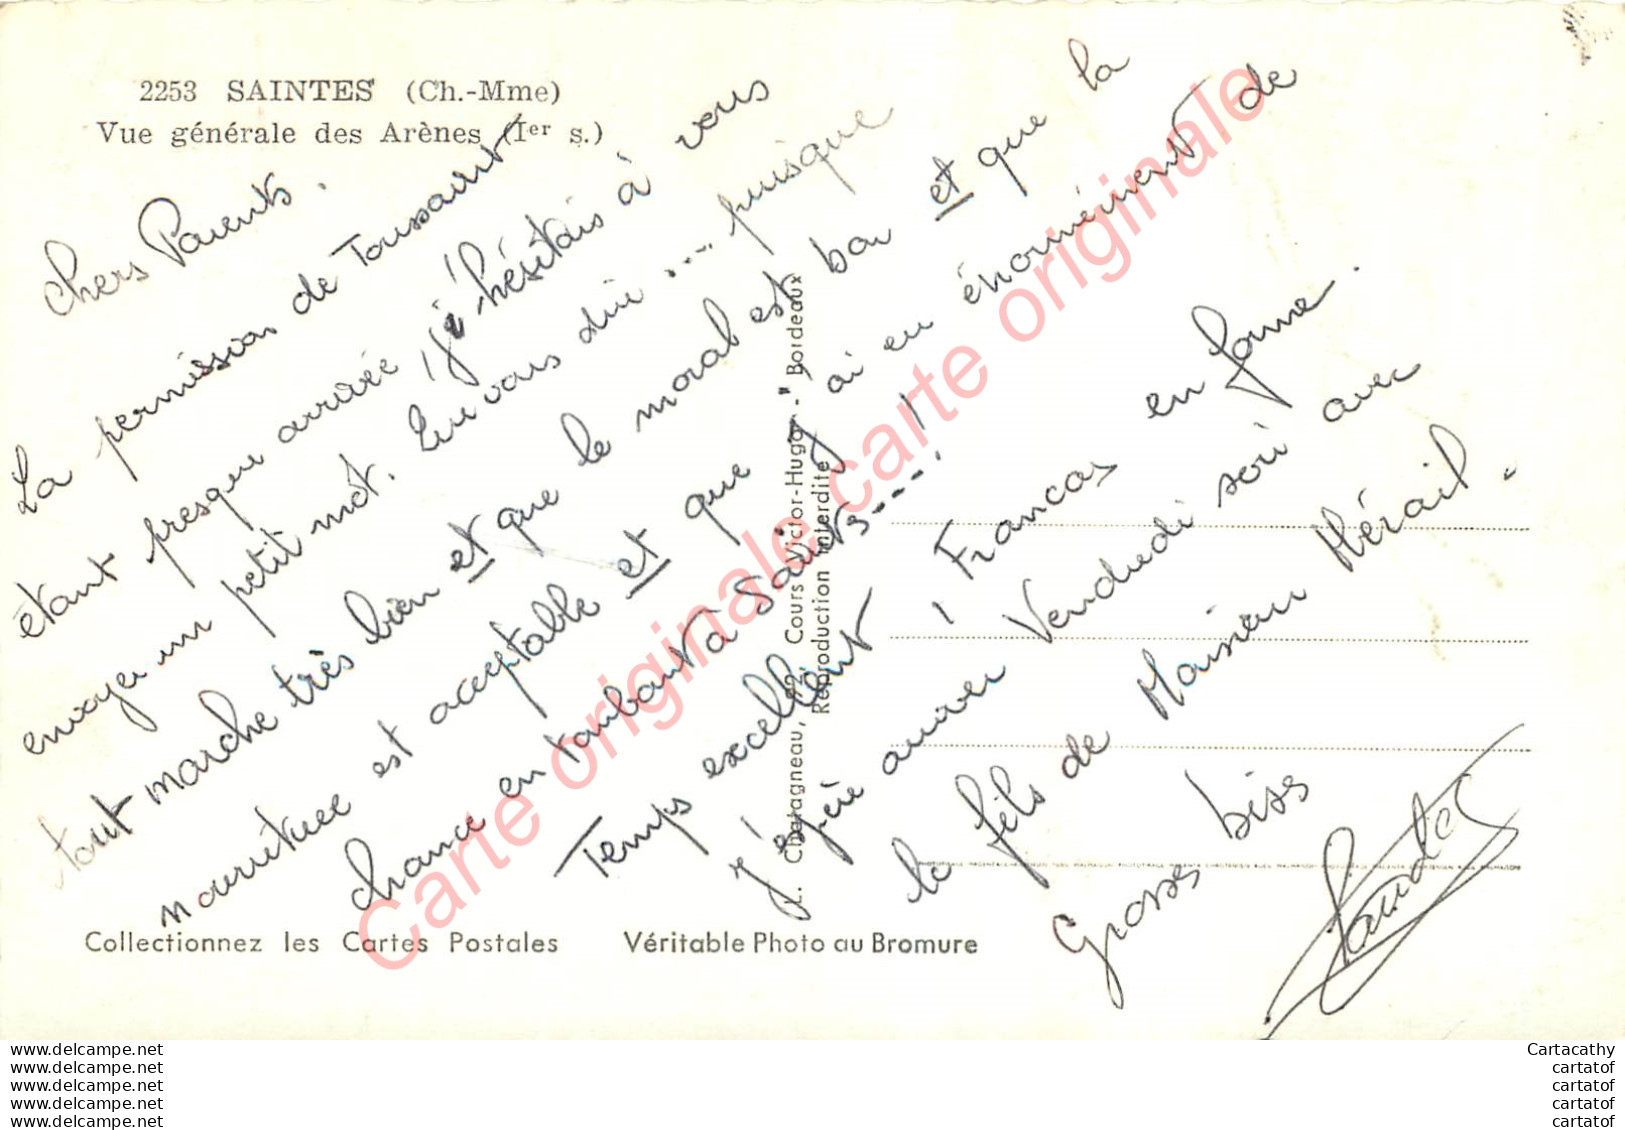 2253 SAINTES (Ch.-Mme)
Vue générale des Arènes (Ier s.)
Chers Parents.
La permission de Toussaint
étant presque arrivée, j'hésitais à vous
envoyer un petit mot. Enu vous dire ... puisque
tout marche très bien et que le moral est bon et que la
nourriture est acceptable et que j'ai eu énormément de
chance en tombant à Saintes----!
Temps excellent, Francas en forme.
J'espère arriver Vendredi soir avec
le fils de Monsieur Mérail.
Grosses bises
Collectionnez les Cartes Postales
Véritable Photo au Bromure
Chatagneau, 92, Cours Victor-Hugo - "Bordeaux
Reproduction interdite
Carte originale carte originale
www.delcampe.net
www.delcampe.net
www.delcampe.net
www.delcampe.net
www.delcampe.net
Cartacathy
cartatof
cartatof
cartatof
cartatof